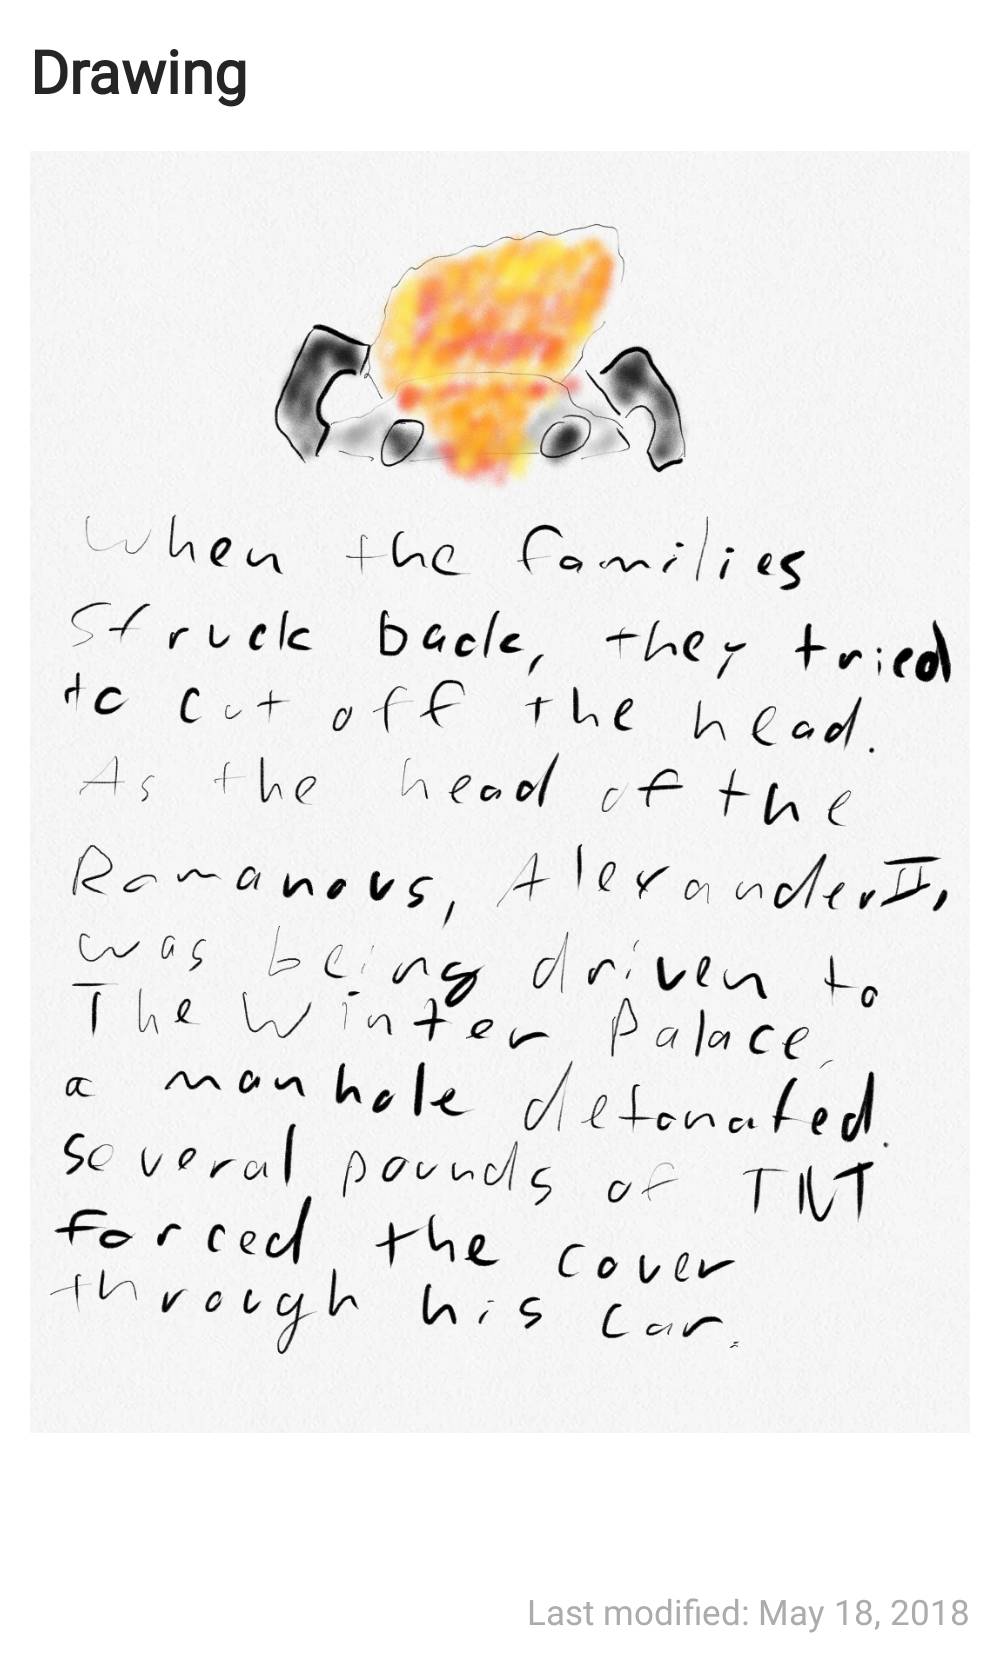 Drawing
When the families
struck back, they tried
to cut off the head.
As the head of the
Romanovs, Alexander II,
was being driven to
The Winter Palace,
a manhole detonated.
several pounds of TNT
forced the cover
through his car.
Last modified: May 18, 2018